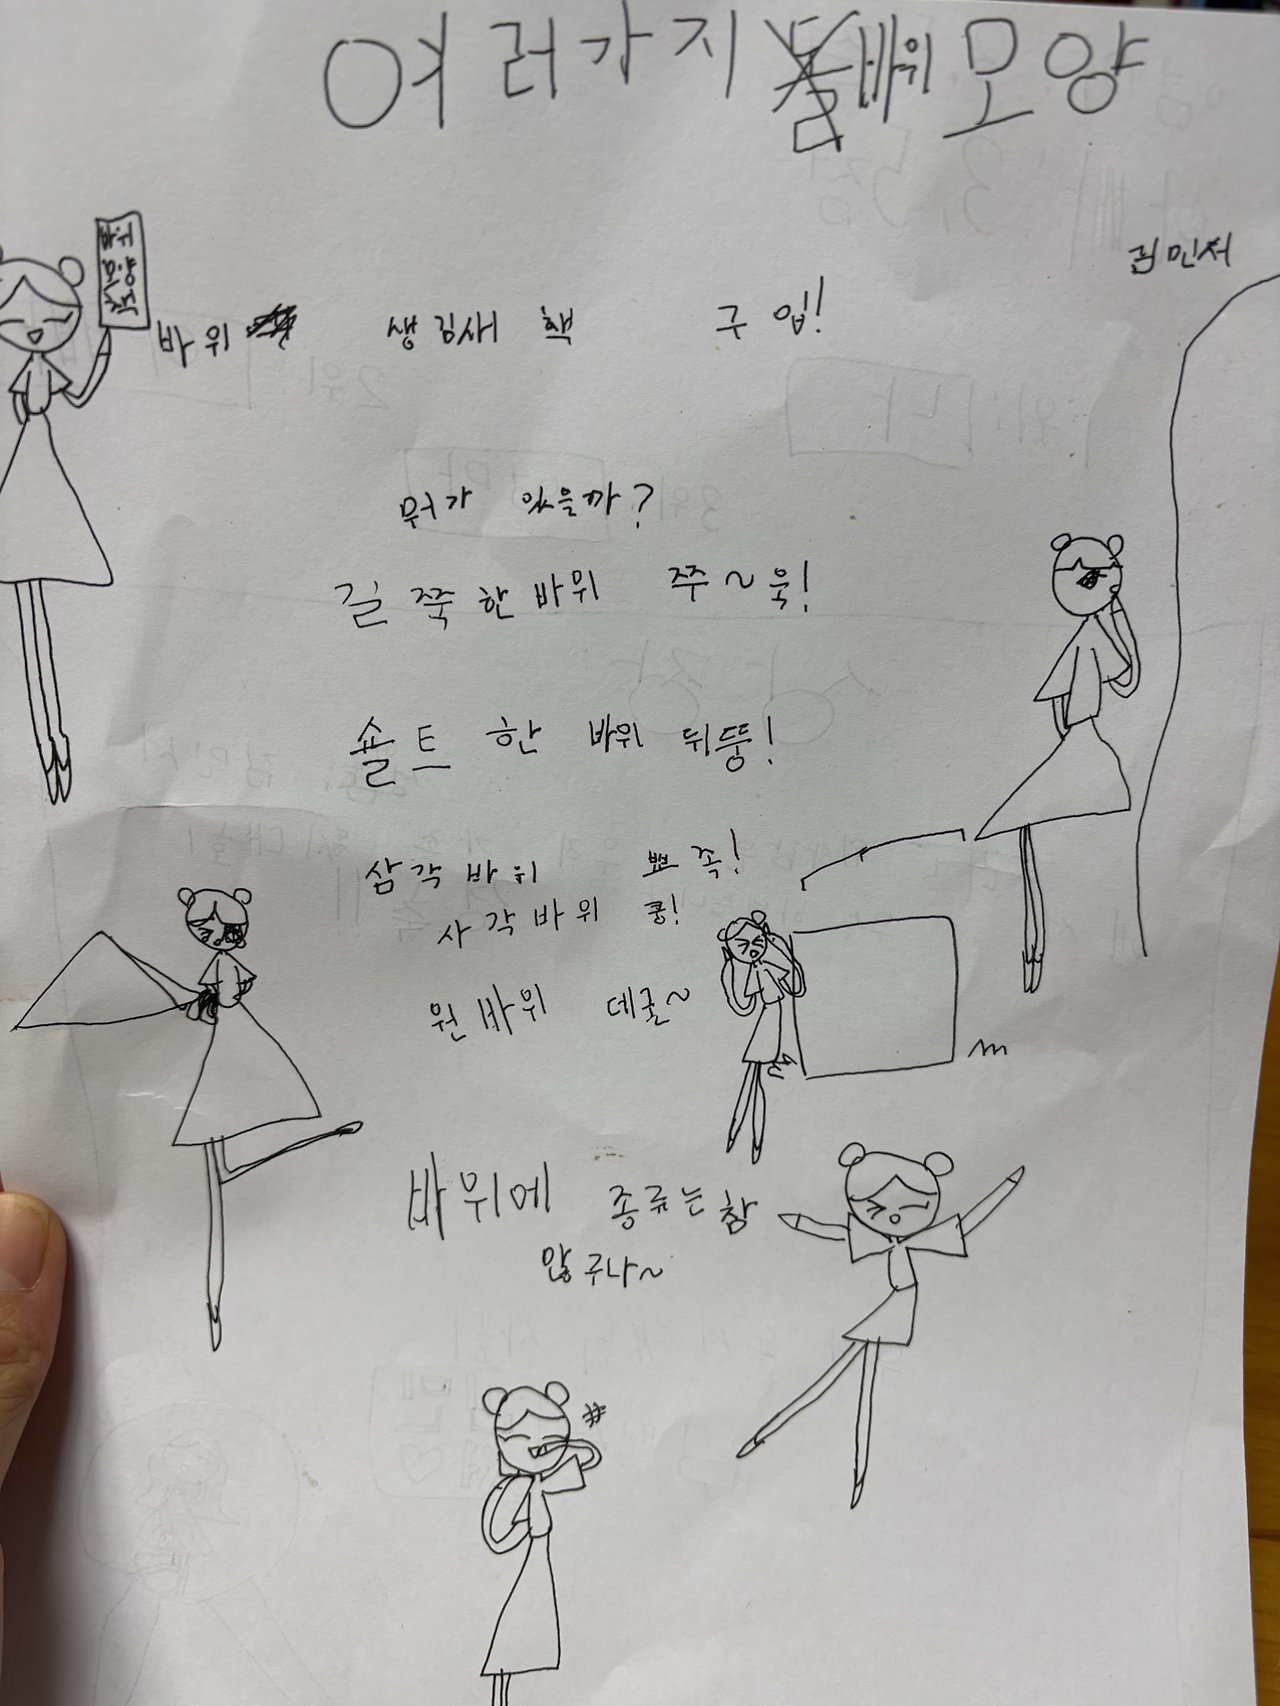 여러가지 바위 모양
김민서
바위 생김새 책 구입!
뭐가 있을까?
길쭉한 바위 쭈~욱!
숄트 한 바위 뒤뚱!
삼각 바위 뾰족!
사각 바위 쿵!
원 바위 데굴~
바위에 종류는 참
많구나~